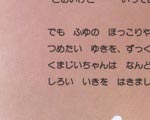 でも ふゆの ほっこりや
つめたい ゆきを、ずっく
くまじいちゃんは なんど
しろい いきを はきまし